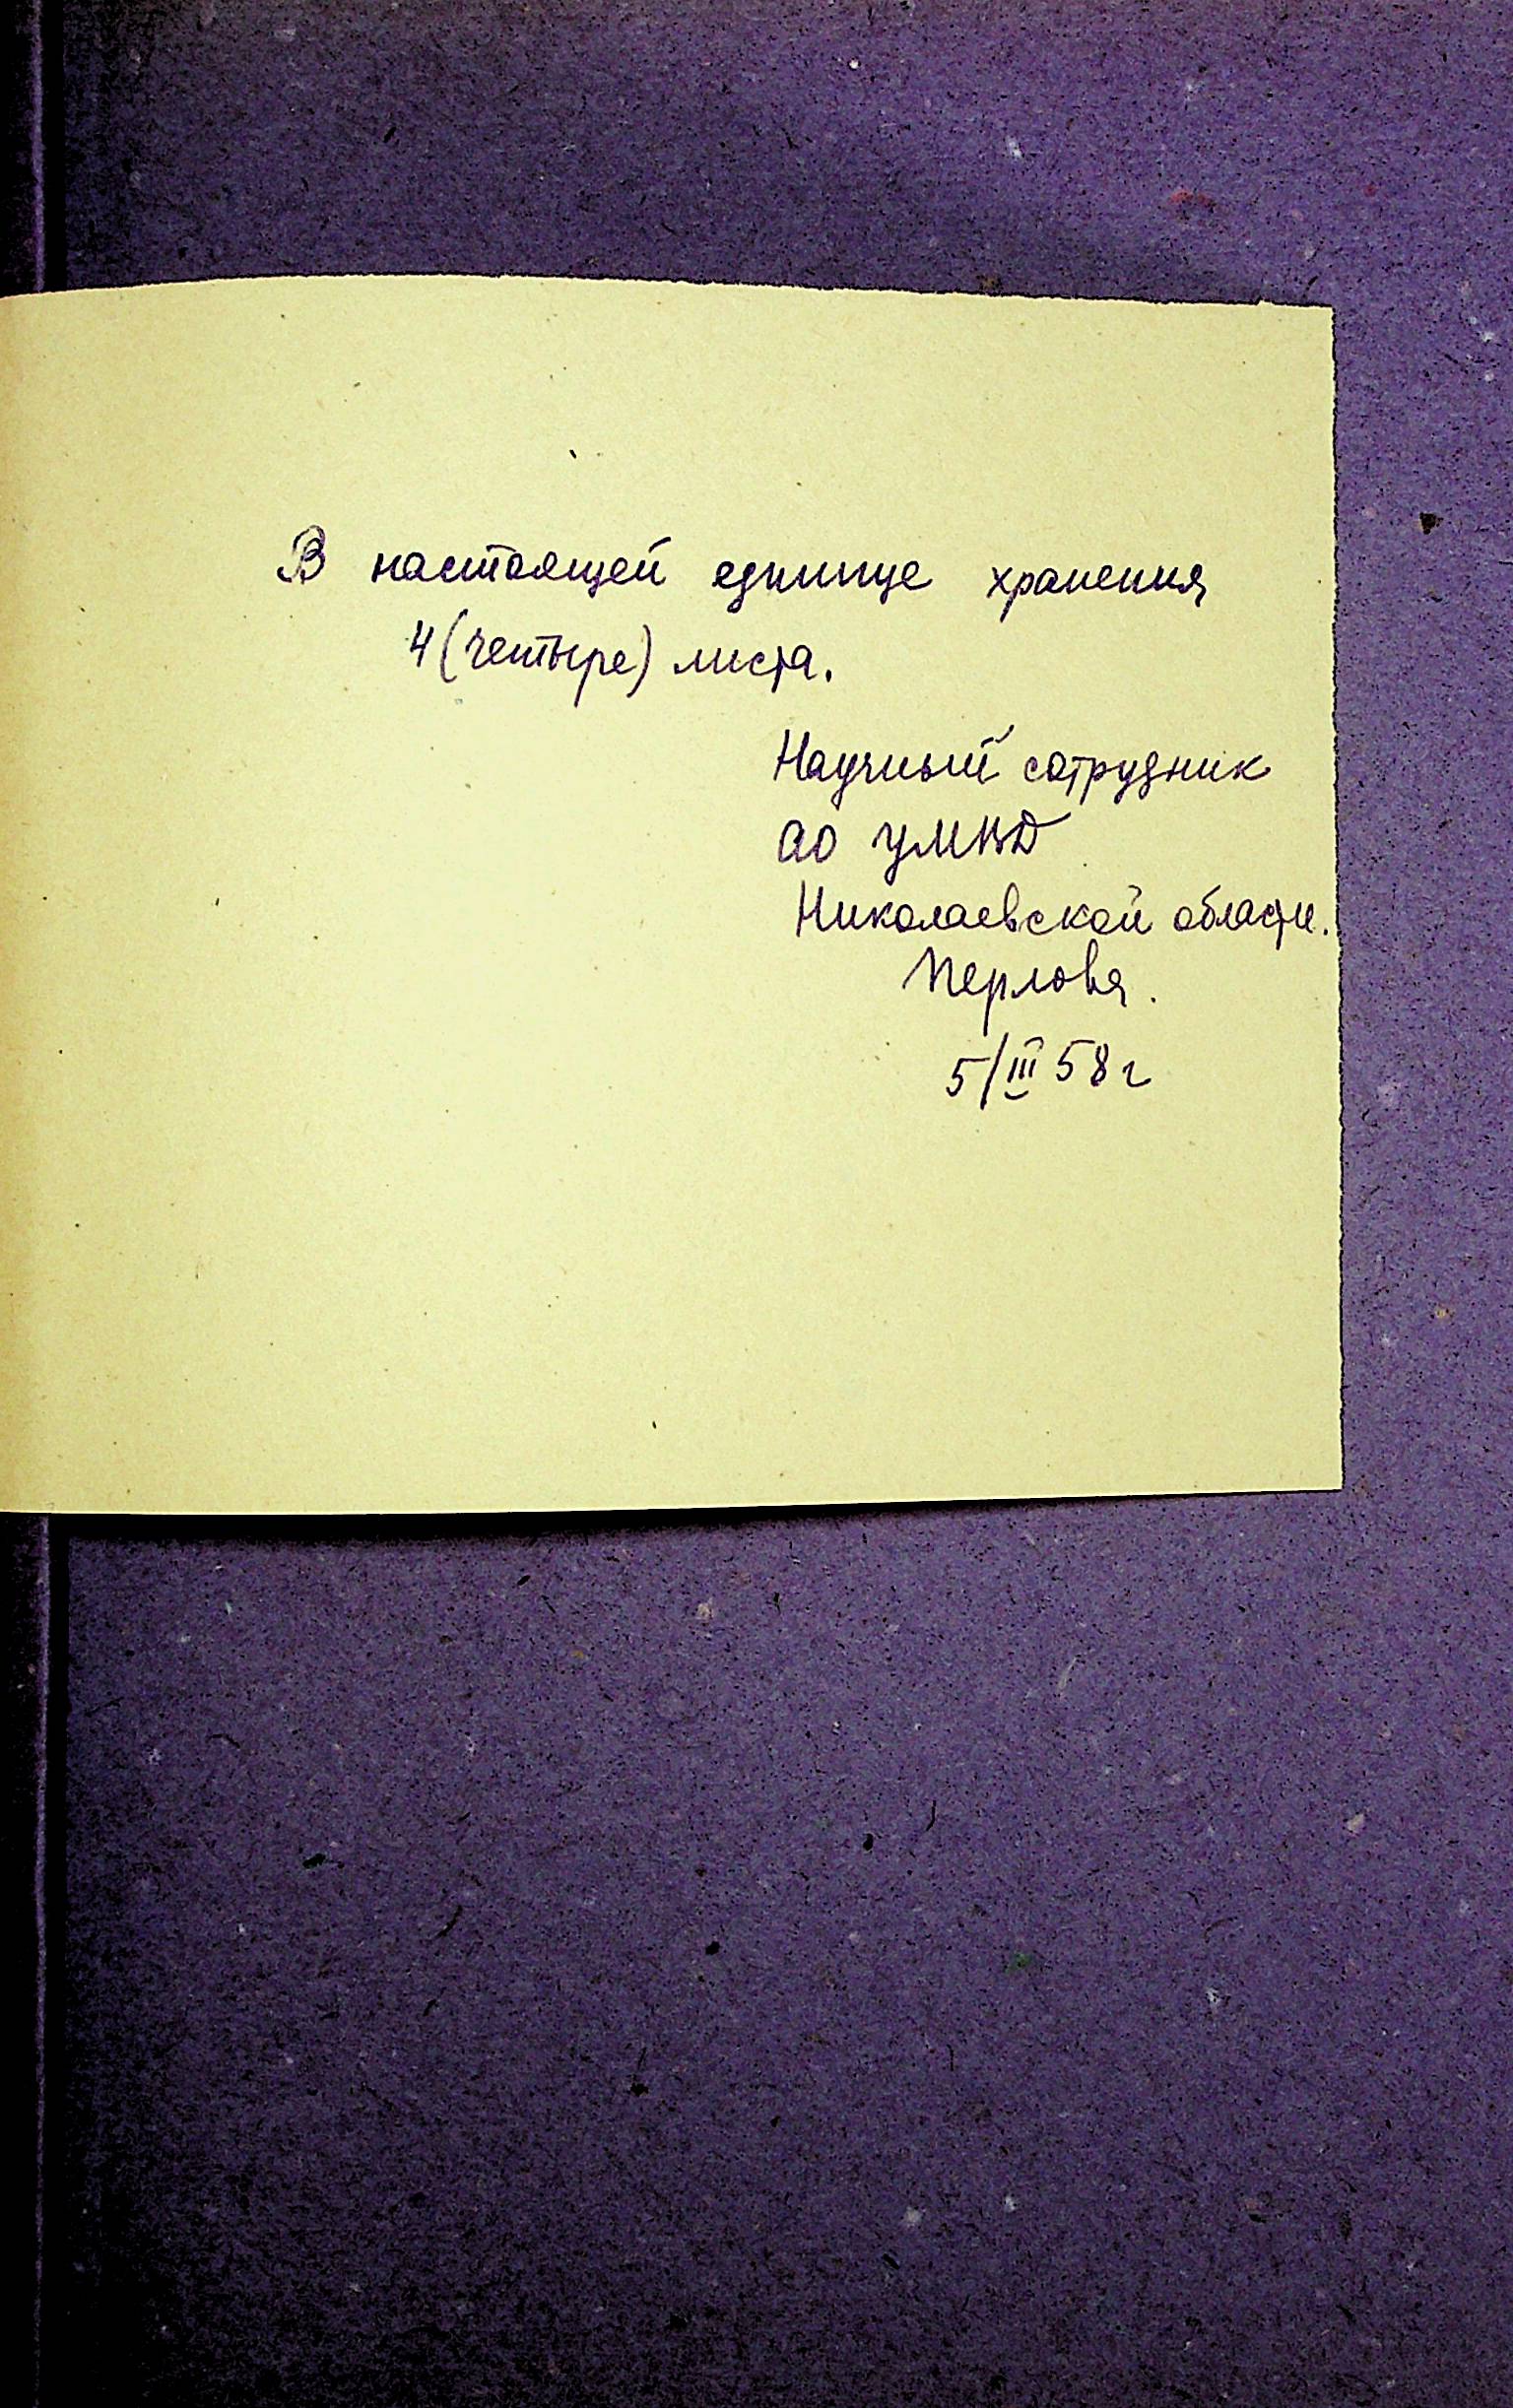 В настоящей единице хранения
4 (четыре) листа.
Научный сотрудник
АО УМВД
Николаевской области.
Перлова.
5/III 58 г